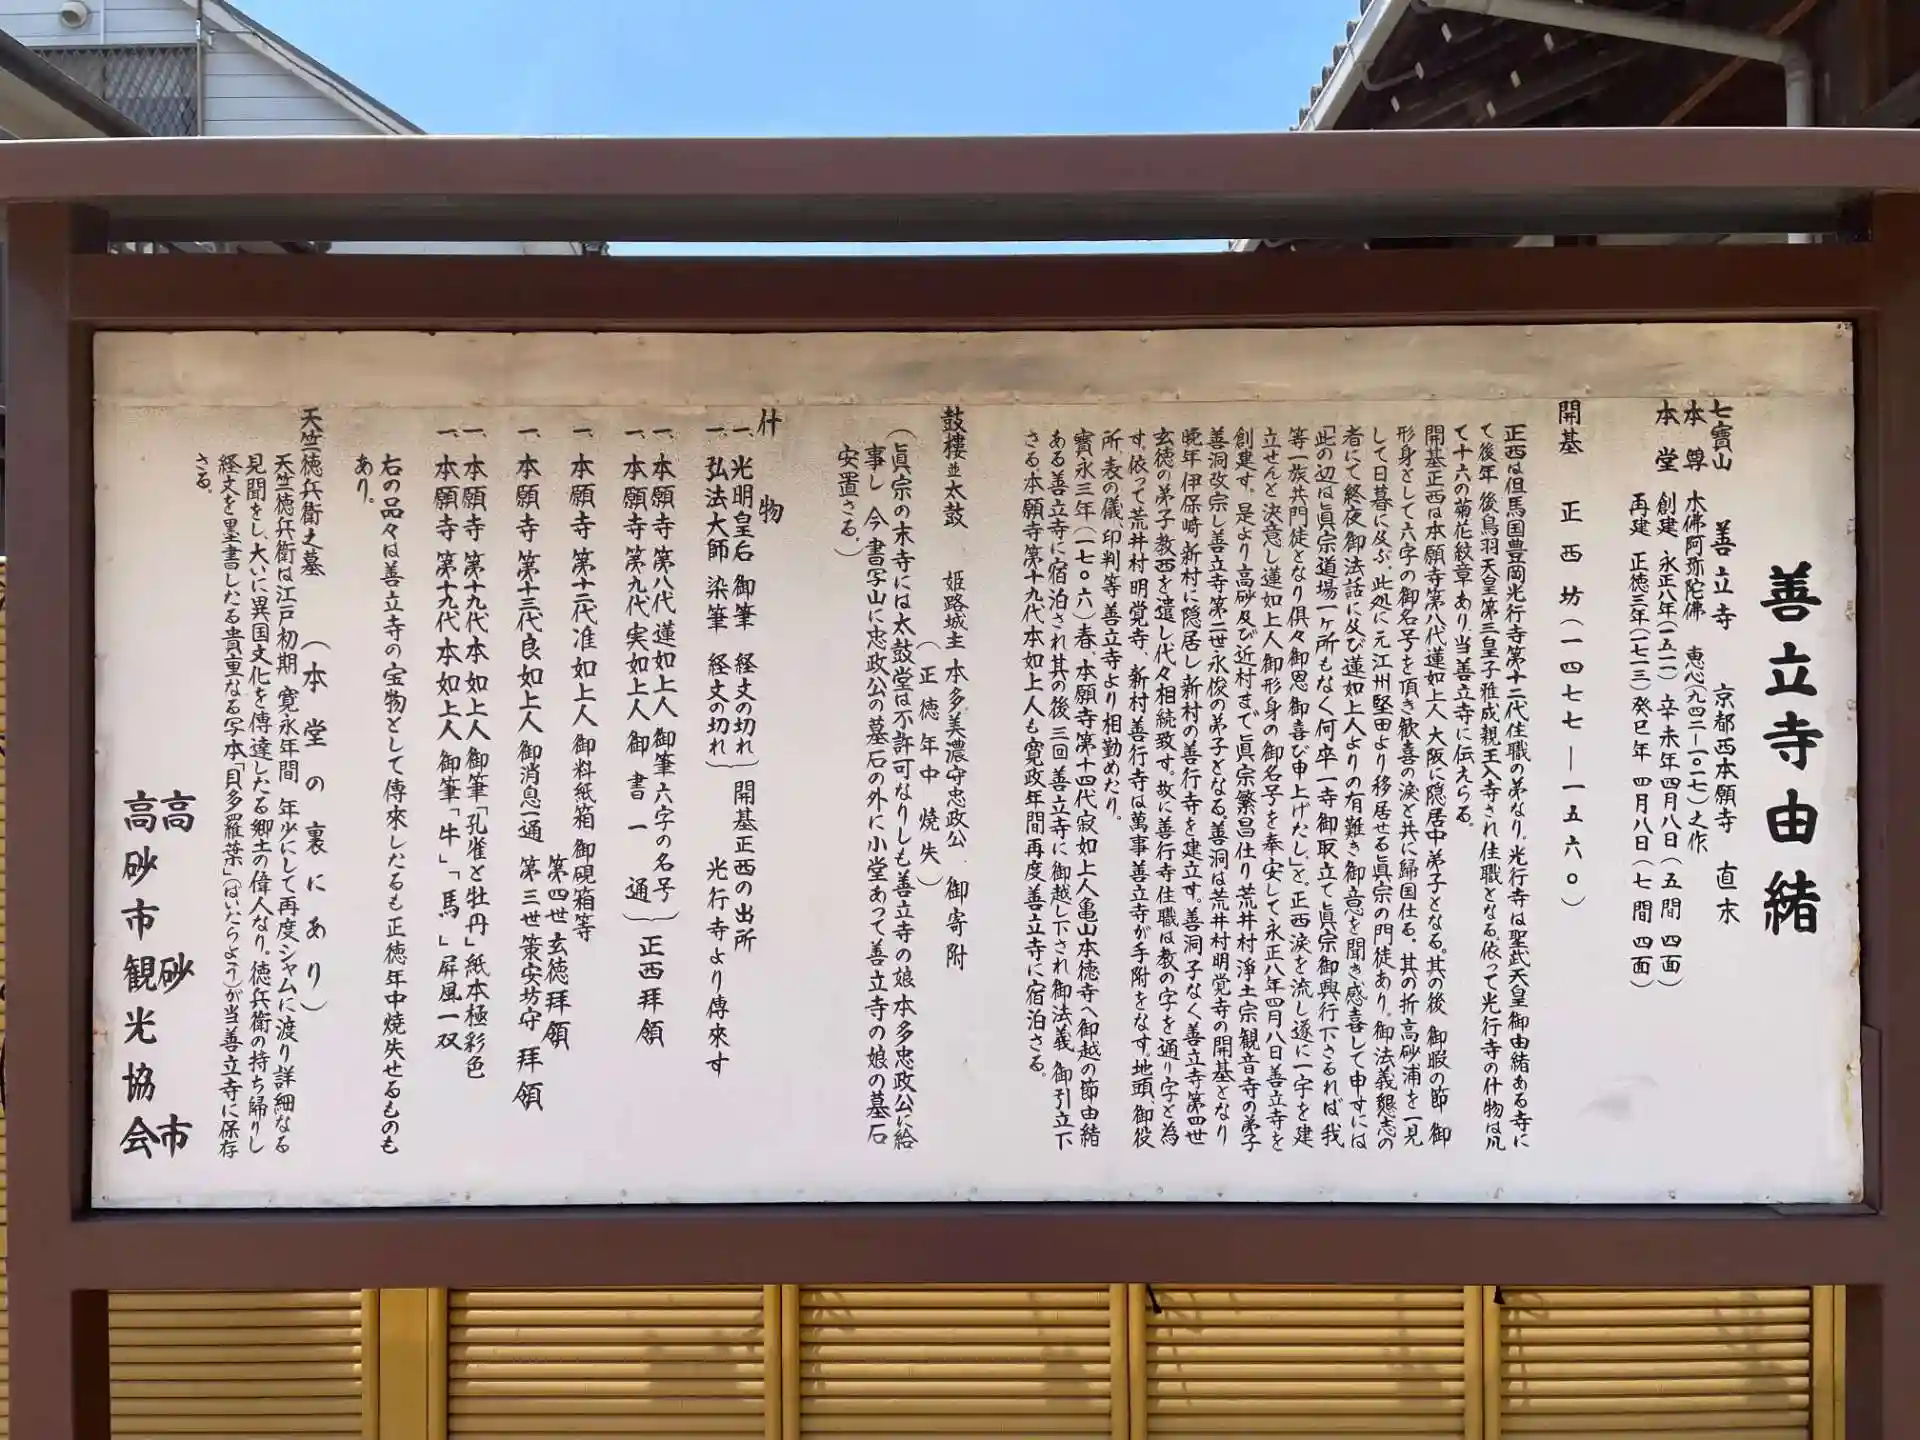 善立寺由緒
七寶山 善立寺 京都西本願寺 直末
本尊 木佛阿弥陀佛 恵心(九四二―一〇一七)之作
本堂 創建 永正八年(一五一一)辛未年四月八日(五間四面)
再建 正徳三年(一七一三)癸巳年四月八日(七間四面)
開基 正西坊(一四七七―一五六〇)
正西は但馬国豊岡光行寺第十二代住職の弟なり。光行寺は聖武天皇御由緒ある寺に
て後年 後鳥羽天皇第三皇子雅成親王入寺され住職となる。依って光行寺の什物は凡
て十六の菊花紋章あり当善立寺に伝えらる。
開基正西は本願寺第八代蓮如上人 大阪に隠居中弟子となる。其の後 御暇の節 御
形身として六字の御名号を頂き歓喜の涙と共に歸国仕る。其の折高砂浦を一見
して日暮に及ぶ。此処に元江州堅田より移居せる眞宗の門徒あり。御法義懇志の
者にて終夜御法話に及び蓮如上人よりの有難き御意を聞き感喜して申すには
「此の辺は眞宗道場一ヶ所もなく何卒一寺御取立て眞宗御興行下さるれば我
等一族共門徒となり俱々御恩御喜び申上げたし」と。正西涙を流し遂に一宇を建
立せんと決意し蓮如上人御形身の御名号を奉安して永正八年四月八日善立寺を
創建す。是より高砂及び近村まで眞宗繁昌仕り荒井村淨土宗観音寺の弟子
善洞改宗し善立寺第二世永俊の弟子となる。善洞は荒井村明覚寺の開基となり
晩年伊保崎新村に隠居し新村の善行寺を建立す。善洞子なく善立寺第四世
玄徳の弟子教西を遣し代々相続致す。故に善行寺住職は教の字を通り字と為
す。依って荒井村明覚寺、新村善行寺は萬事善立寺が手附をなす。地頭、御役
所、表の儀、印判等善立寺より相勤めたり。
寶永三年(一七〇六)春、本願寺第十四代寂如上人亀山本徳寺へ御越の節由緒
ある善立寺に宿泊され其の後三回善立寺に御越し下され御法義 御引立下
さる。本願寺第十九代本如上人も寛政年間再度善立寺に宿泊さる。
鼓樓並太鼓 姫路城主 本多美濃守忠政公 御寄附
(正徳年中 焼失)
(眞宗の末寺には太鼓堂は不許可なりしも善立寺の娘本多忠政公に給
事し 今 書写山に忠政公の墓石の外に小堂あって善立寺の娘の墓石
安置さる。)
什物
一、光明皇后 御筆 経文の切れ 開基正西の出所
一、弘法大師 染筆 経文の切れ 光行寺より傳來す
一、本願寺 第八代 蓮如上人 御筆六字の名号
一、本願寺 第九代 実如上人 御書 一通 正西拝領
一、本願寺 第十二代准如上人 御料紙箱 御硯箱等
第四世 玄徳拝領
一、本願寺 第十三代良如上人 御消息一通 第三世 策安坊守 拝領
一、本願寺 第十九代本如上人 御筆「孔雀と牡丹」紙本極彩色
一、本願寺 第十九代本如上人 御筆「牛」「馬」屏風一双
右の品々は善立寺の宝物として傳來したるも正徳年中焼失せるものも
あり。
天竺徳兵衛之墓 (本堂の裏にあり)
天竺徳兵衛は江戸初期 寛永年間 年少にして再度シャムに渡り詳細なる
見聞をし、大いに異国文化を傳達したる郷土の偉人なり。徳兵衛の持ち歸りし
経文を墨書したる貴重なる写本「貝多羅葉」(ばいたらよう)が当善立寺に保存
さる。
高砂市
高砂市観光協会